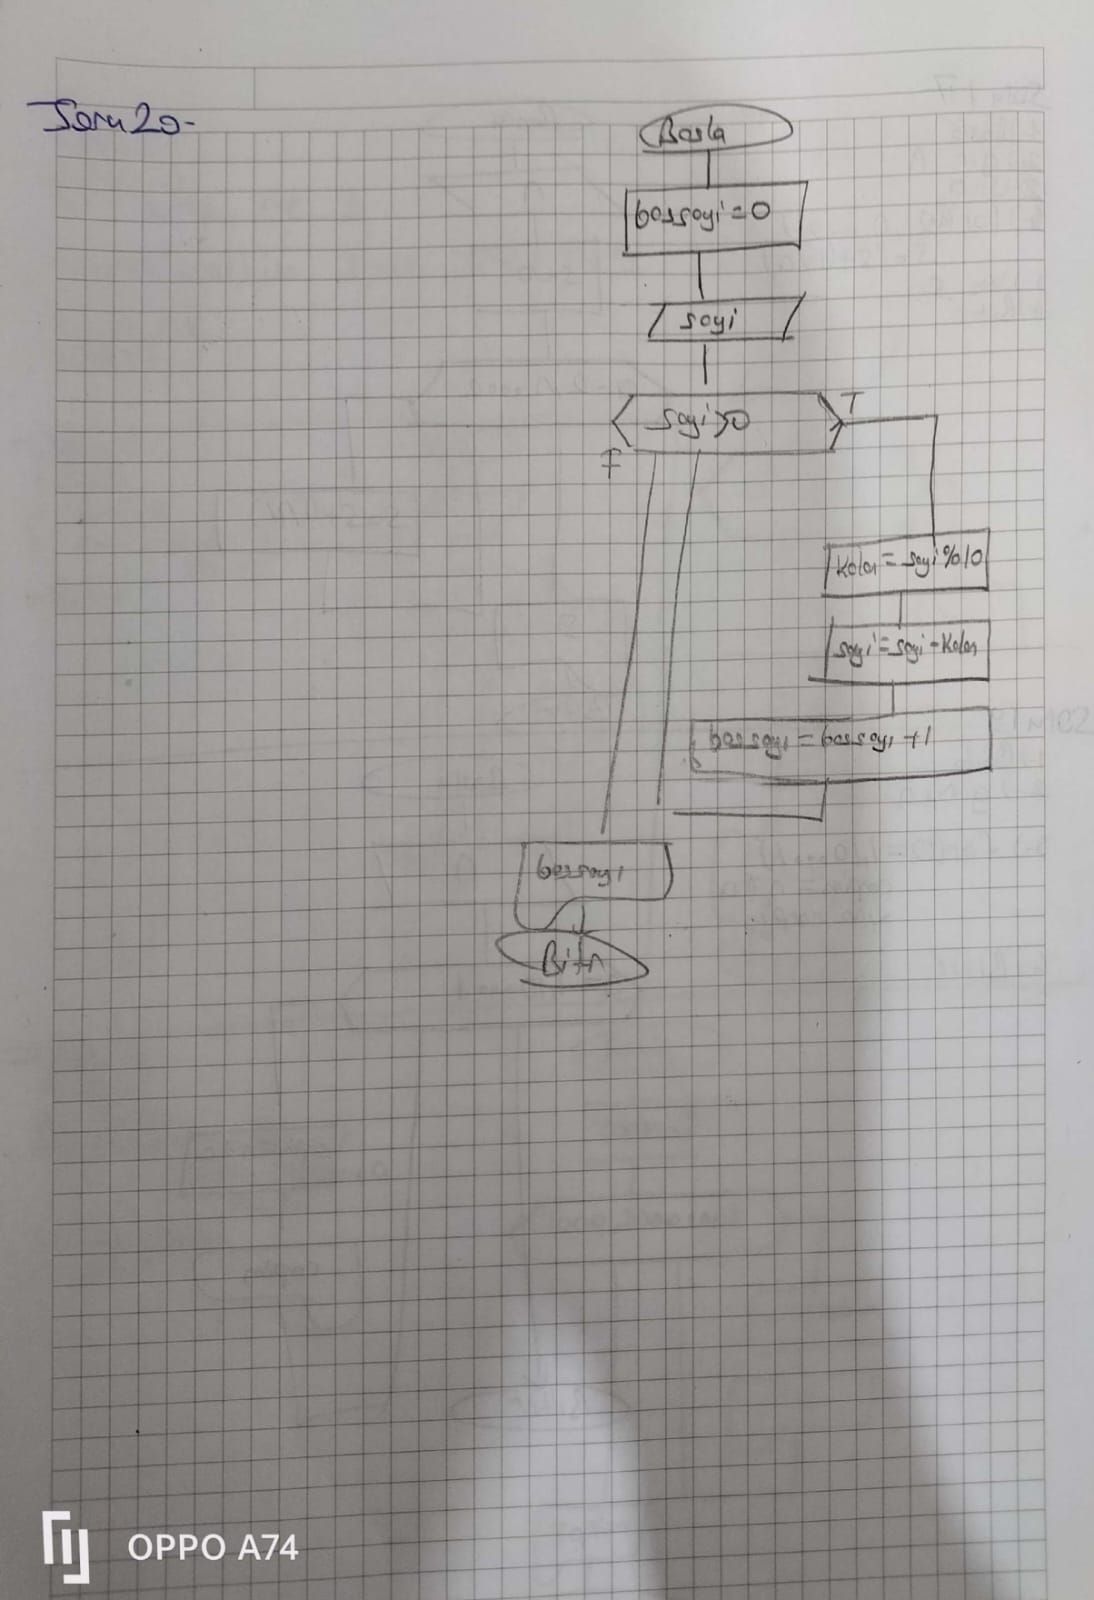 Soru 20-
Basla
bassayi=0
sayi
sayi>0
T
F
kalan = sayi%10
sayi=sayi-kalan
bassayi = bassayi +1
bassayi
Bitir
OPPO A74